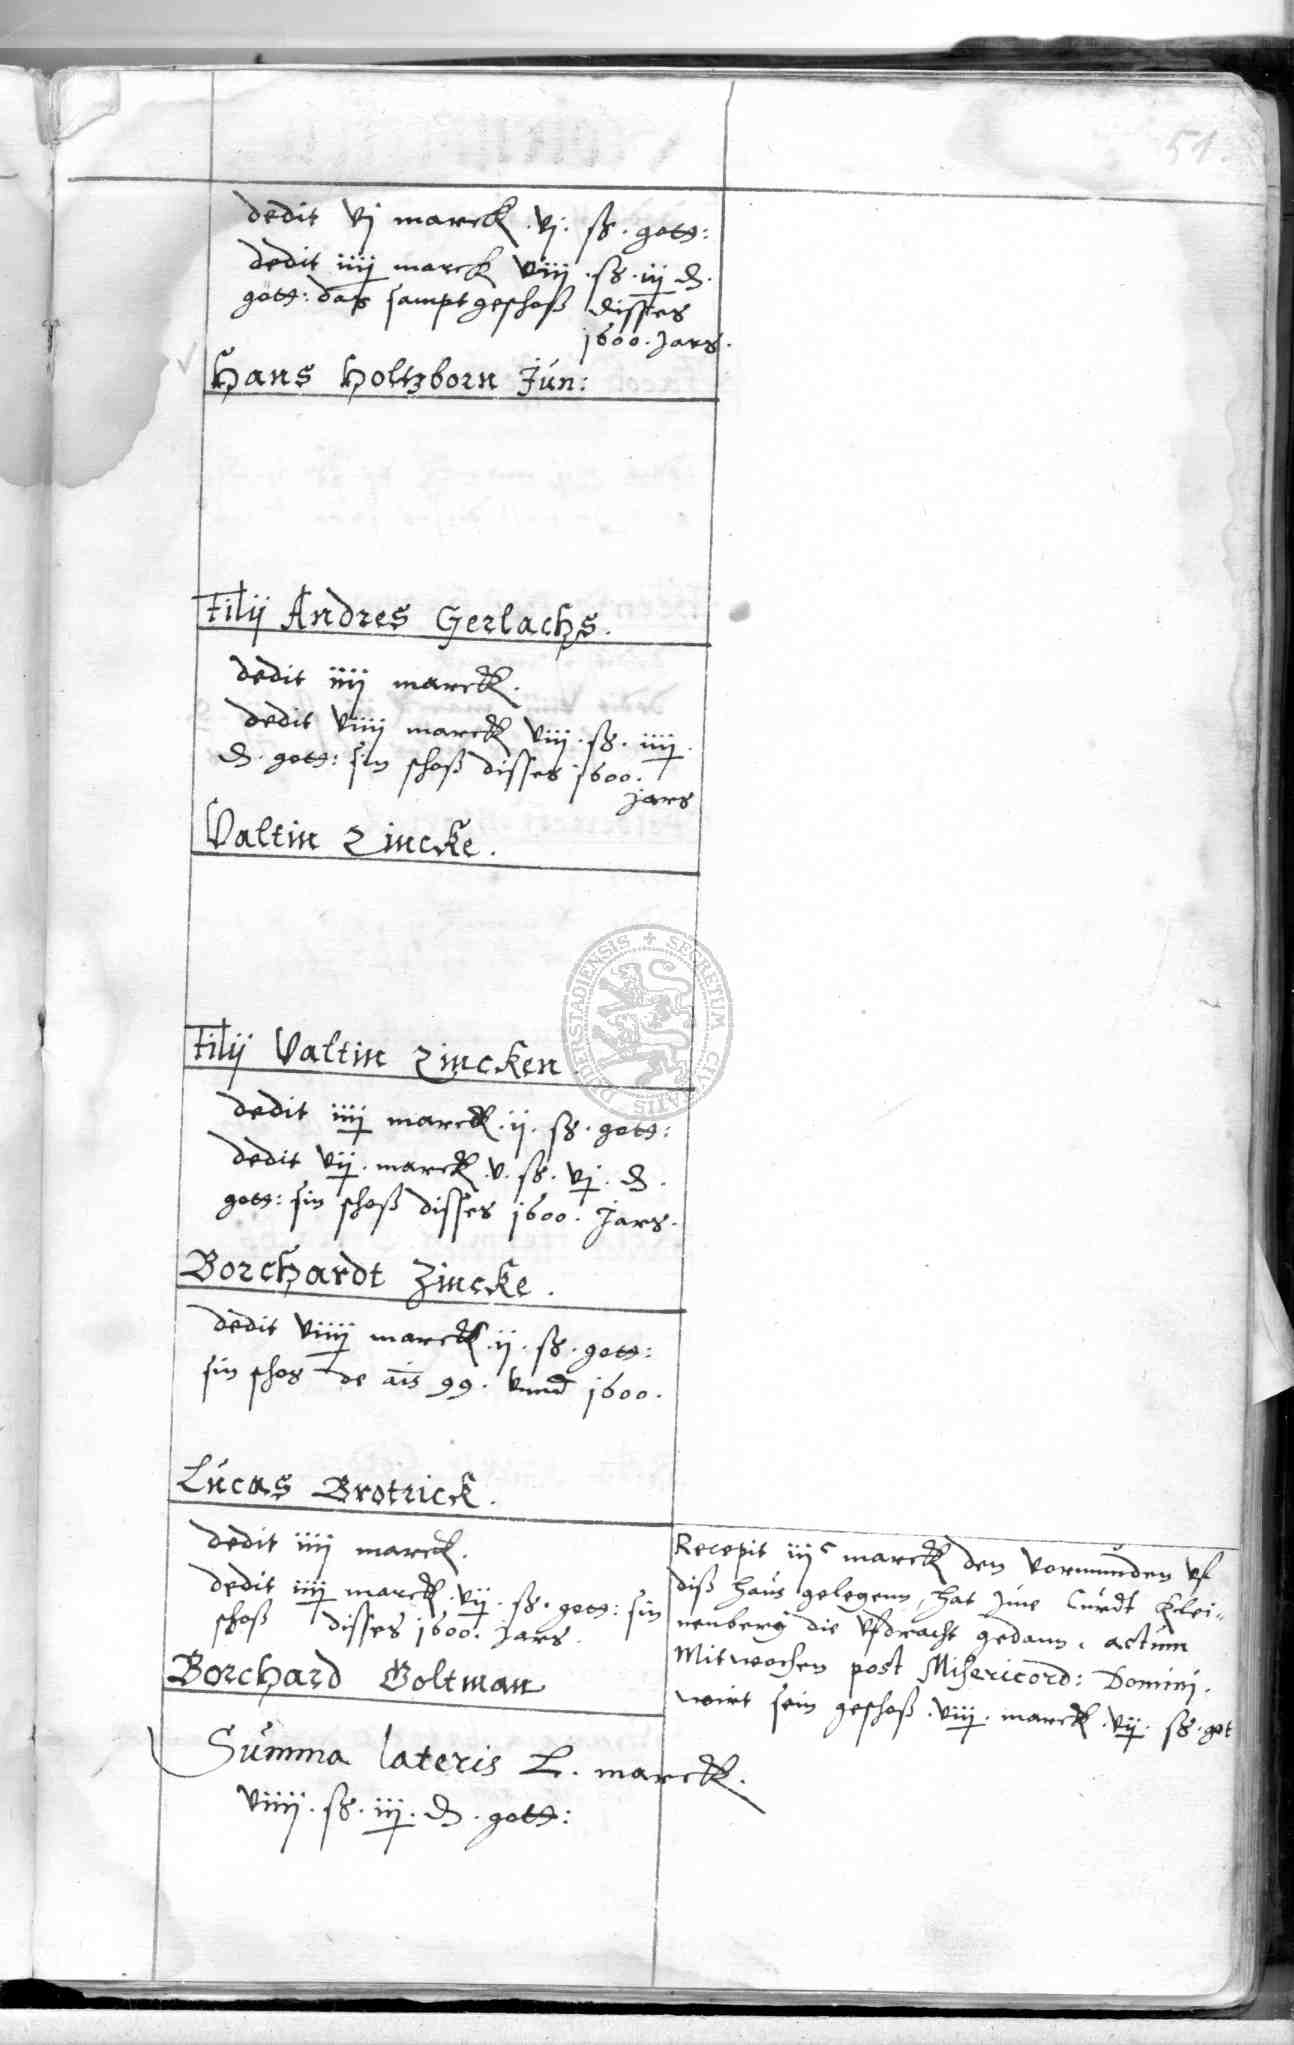 51
dedit vj marck . vj : ß . gott :
dedit iiij marck viiij . ß . iij d .
gott : das samptgeschoß disses
1600 . Jars .
Hans Holtzborn Jún :
Filij Andres Gerlachs .
dedit iiij marck .
dedit viiij marck viij . ß . iiij .
d . gott : sin schoß disses 1600 .
Jars
Valtin Zincke .
Filij Valtin Zincken .
dedit iiij marck . ij . ß . gott :
dedit vij . marck . v . ß . vj . d .
gott : sin schoß disses 1600 . Jars .
Borchardt Zincke .
dedit viiij marck . ij . ß . gott :
sin schos de ais 99 . vnnd 1600 .
Lúcas Brotrick .
dedit iiij marck .
dedit iiij marck . vij . ß . gott : sin
schoß disses 1600 . Jars .
Borchard Boltman
Recepit iij c marck den vormunden vf
diß haús gelegenn , hat Jme Cúrdt Klei-
nenberg die vfdracht gedann . actúm
Mitwochen post Misericord : Domini .
wirt sein geschoß . viij . marck . vij . ß . got
Súmma lateris L . marck .
viiij . ß . iij . d . gott :
SECRETUM CIVITATIS DUDERSTADIENSIS